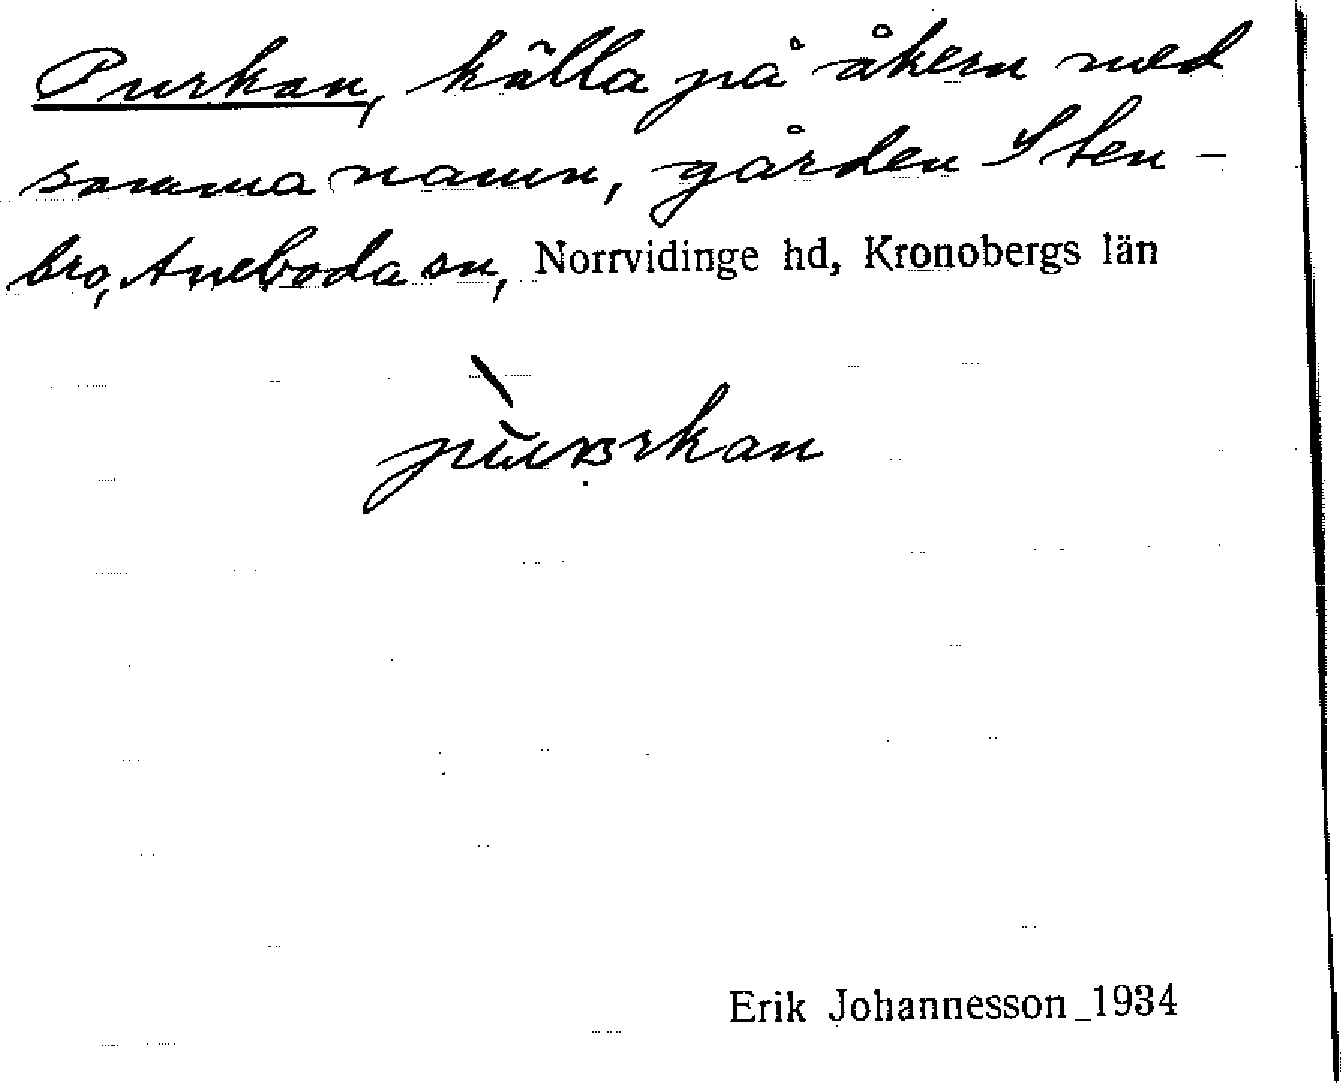 Purkan, källa på åkern med
samma namn, gården Sten-
bro, Aneboda sn, Norrvidinge hd, Kronobergs län
Erik Johannesson 1934